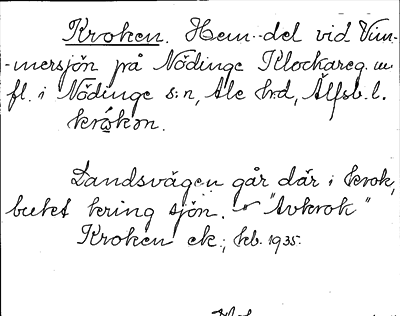 Kroken. Hem.-del vid Vim-
-mersjön på Nödinge Klockareg. m
fl. i Nödinge s:n, Ale hrd, Älfsb. l.
krókən.
Landsvägen går där i krok,
buket kring sjön. "Avkrok"
Kroken ek.; kb. 1935.